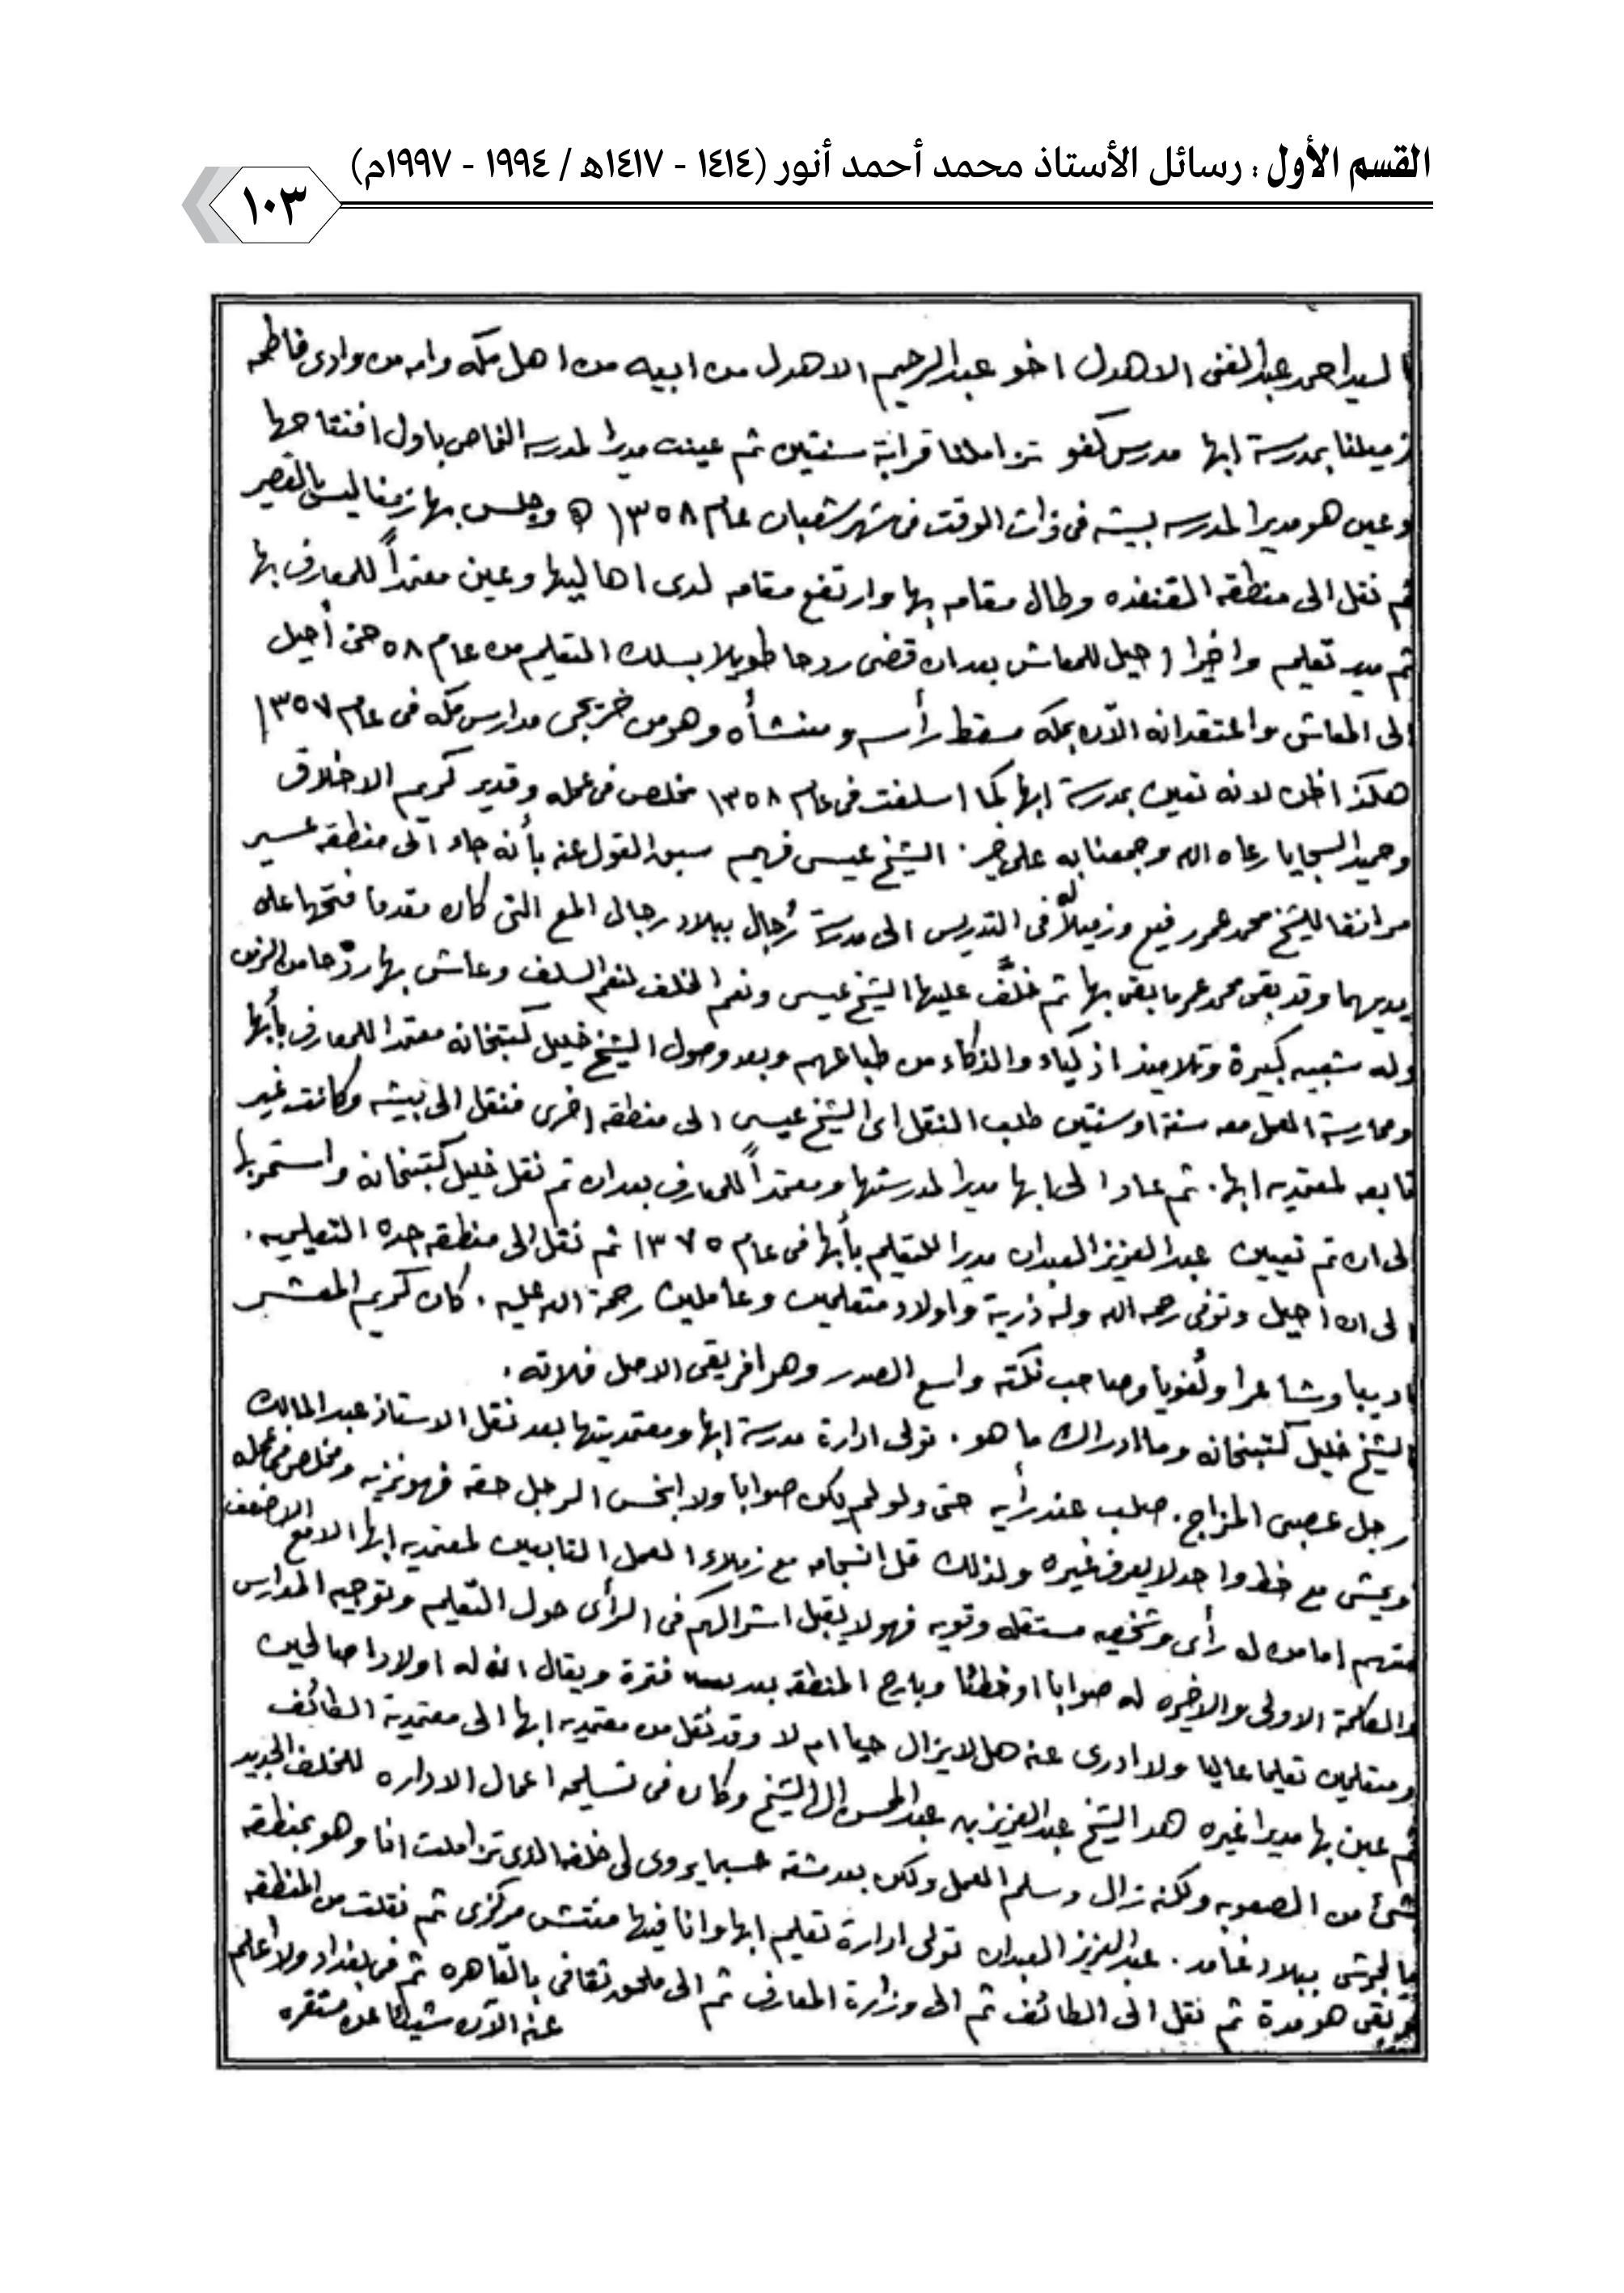 القسم الأول : رسائل الأستاذ محمد أحمد أنور (١٤١٤ - ١٤١٧هـ / ١٩٩٤ - ١٩٩٧م)
١٠٣
السيد احمد عبدالغنى الاهدل اخو عبدالرحيم الاهدل من ابيه من اهل مكه وامه من وادى فاطمه
زميلنا بمدرسة ابها مدرس كفو تزاملنا قرابة سنتين ثم عينت مديرا لمدرسه النماص باول افتتاحها
وعين هو مديرا لمدرسه بيشه فى ذات الوقت فى شهر شعبان عام ١٣٥٨ هـ وجلس بها زمنا ليس بالقصير
ثم نقل الى منطقه القنفذه وطال مقامه بها وارتفع مقامه لدى اهاليها وعين معتمداً للمعارف بها
ثم مدير تعليم واخيرا احيل للمعاش بعد ان قضى ردحا طويلا بسلك التعليم من عام ٥٨ حتى أحيل
الى المعاش والمعتقد انه الآن بمكه مسقط رأسه ومنشأه وهو من خريجى مدارس مكه فى عام ١٣٥٧
هكذا اظن لانه تعين بمدرسة ابها كما اسلفت فى عام ١٣٥٨ مخلص فى عمله وقدير كريم الاخلاق
وحميد السجايا رعاه الله وجمعنا به على خير . الشيخ عيسى فهيم سبق القول عنه بأنه جاء الى منطقه عسير
مرافقا للشيخ محمد عمر رفيع وزميلاً له فى التدريس الى مدرسة رُجال ببلاد رجال المع التى كان مقدما فتحها على
يديهما وقد بقى محمد عمر ما بقى بها ثم خلّف عليها الشيخ عيسى ونعم الخلف لنعم السلف وعاش بها ردحا من الزمن
وله شعبيه كبيرة وتلاميذ اذكياء والذكاء من طباعهم وبعد وصول الشيخ خليل كتبخانه معتمدا للمعارف بأبها
وممارسة العمل معه سنة او سنتين طلب النقل اى الشيخ عيسى الى منطقه اخرى فنقل الى بيشه وكانت غير
تابعه لمعتمديه ابها . ثم عاد الى ابها مديرا لمدرستها ومعتمداً للمعارف بعد ان تم نقل خليل كتبخانه واستمر بها
الى ان تم تعيين عبدالعزيز العبدان مديرا للتعليم بأبها فى عام ١٣٧٥ ثم نقل الى منطقه جده التعليميه .
الى ان احيل وتوفى رحمه الله وله ذرية واولاد متعلمين وعاملين رحمة الله عليه . كان كريم المعشر
اديبا وشاعرا ولُغويا وصاحب نكته واسع الصدر وهو افريقى الاصل فلاته .
الشيخ خليل كتبخانه وما ادراك ما هو . تولى ادارة مدرسة ابها ومعتمديتها بعد نقل الاستاذ عبدالمالك
رجل عصبى المزاج . صلب عند رأيه حتى ولو لم يكن صوابا ولا ابخس الرجل حقه فهو نزيه ومخلص فى عمله
ويمشى مع خط واحد لا يعرف غيره ولذلك قل انسجامه مع زملاء العمل التابعين لمعتمديه ابها الا مع الاضعف
منهم اما من له رأى وشخصيه مستقله وقويه فهو لا يقبل اشراكهم فى الرأى حول التعليم وتوجيه المدارس
والكلمة الاولى والاخيره له صوابا او خطئا وبارح المنطقه بعد فترة ويقال انه له اولادا صالحين
ومتعلمين تعليما عاليا ولا ادرى عنه هل لايزال حيا ام لا وقد نقل من معتمديه ابها الى معتمدية الطائف
ثم عين بها مديرا غيره هو الشيخ عبدالعزيز بن عبدالمحسن ال الشيخ وكان فى تسليمه اعمال الاداره للخلف الجديد
شئ من الصعوبه ولكنه زال وسلم العمل ولكن بعد مشقه حسبما يروى لى خلفه الذى تزاملت انا وهو بمنطقه
بالجرشى ببلاد غامد . عبدالعزيز العبدان تولى ادارة تعليم ابها وانا فيها مفتش مركزى ثم نقلت من المنطقه
وبقى هو مدة ثم نقل الى الطائف ثم الى وزارة المعارف ثم الى ملحق ثقافى بالقاهره ثم فى بغداد ولا أعلم
عنه الآن شيئا عن مستقره